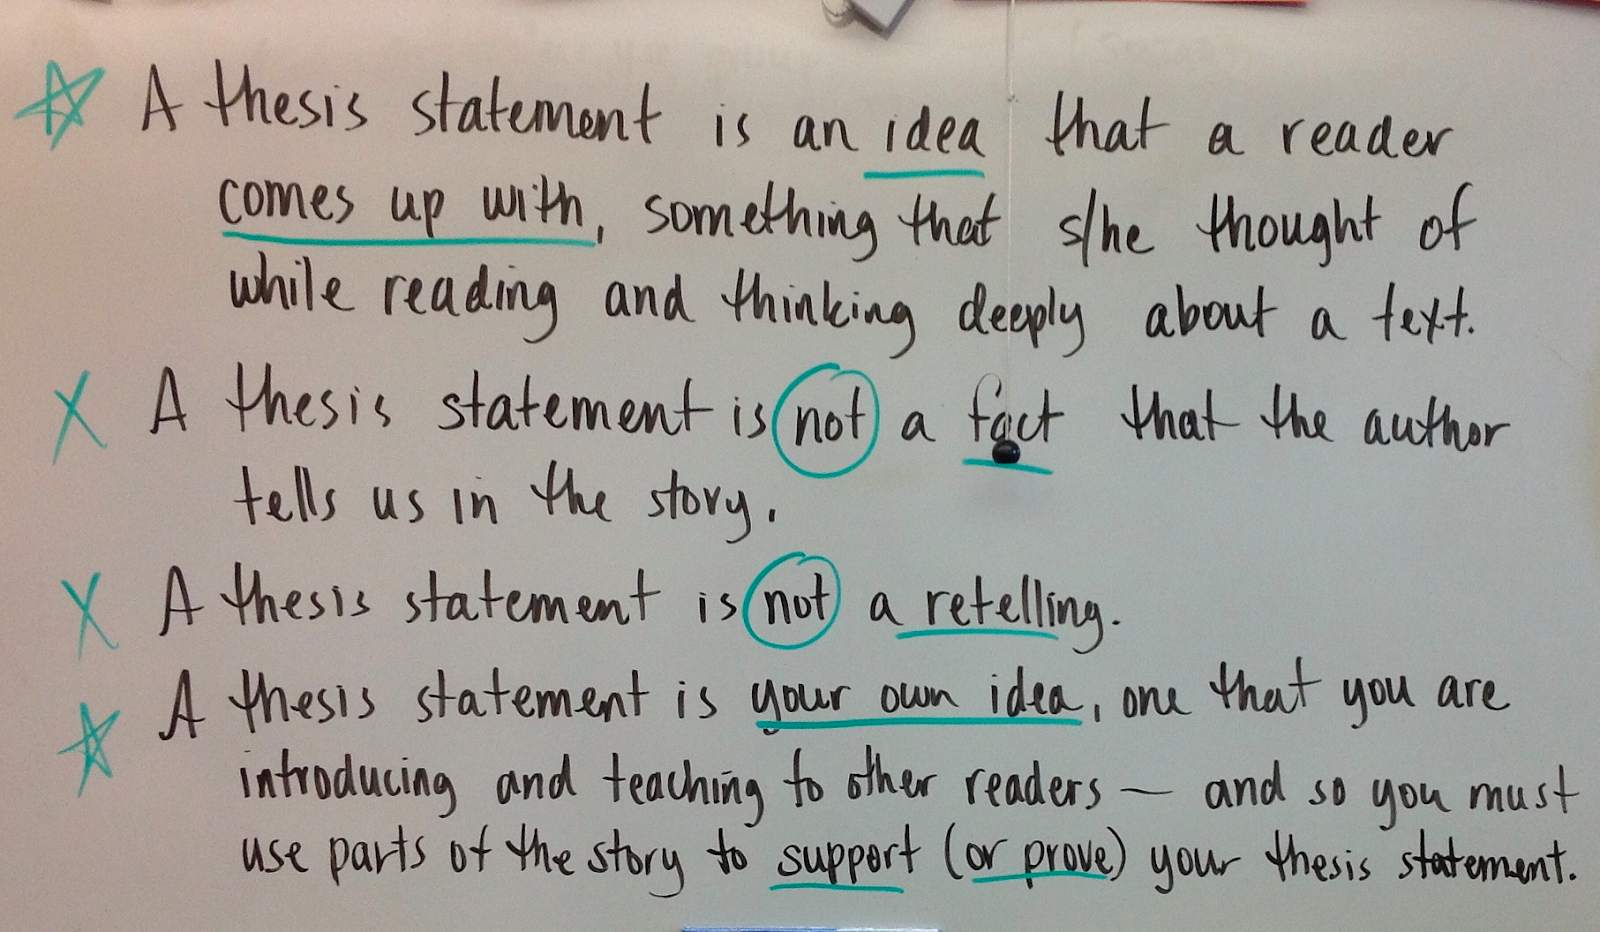 A thesis statement is an idea that a reader
comes up with, something that s/he thought of
while reading and thinking deeply about a text.
X A thesis statement is not a fact that the author
tells us in the story.
X A thesis statement is not a retelling.
A thesis statement is your own idea, one that you are
introducing and teaching to other readers — and so you must
use parts of the story to support (or prove) your thesis statement.